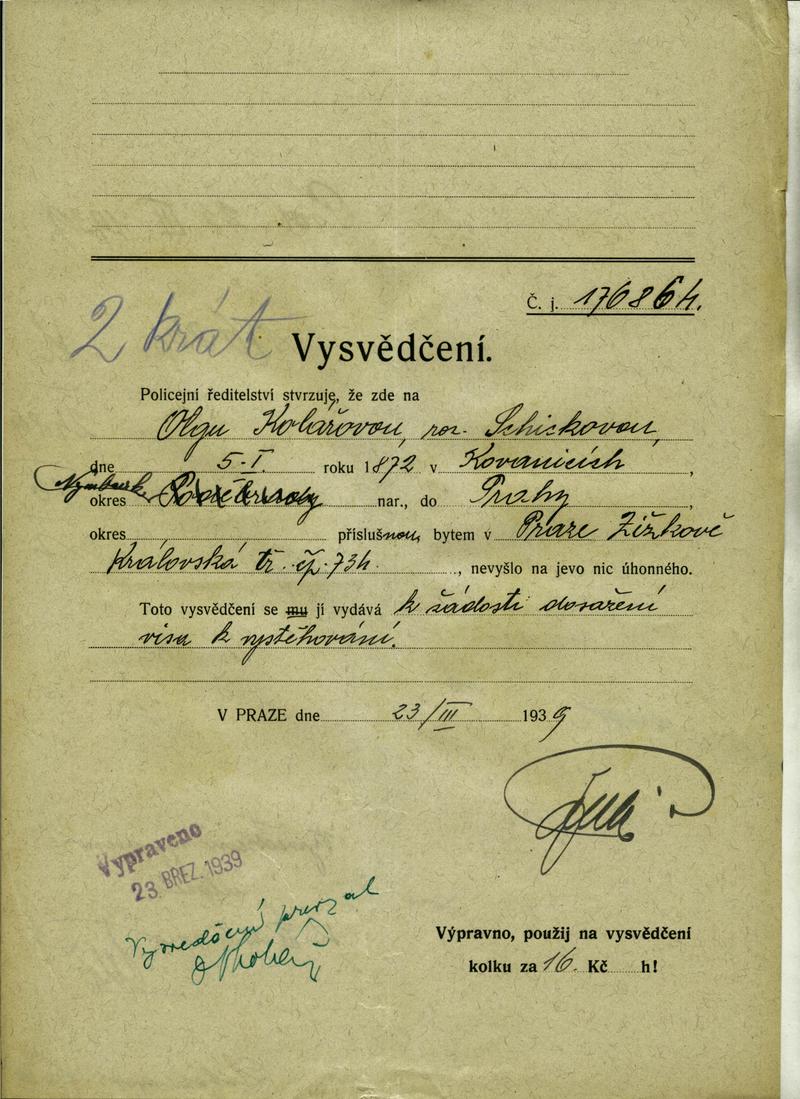 Č. j. 176864.
2 krát
Vysvědčení.
Policejní ředitelství stvrzuje, že zde na
Olgu Kolářovou, roz. Schickovou,
dne 5.I. roku 1872 v Kovanicích,
Nymburk
okres Poděbrady nar., do Prahy,
okres příslušnou, bytem v Praze Žižkově
Královská tř. čp. 734, nevyšlo na jevo nic úhonného.
Toto vysvědčení se mu jí vydává k žádosti dosažení
visa k vystěhování.
V PRAZE dne 23/III 1939
Vypraveno
23. BŘEZ. 1939
Vysvědčení převzal
Výpravno, použij na vysvědčení
kolku za 16. Kč h!